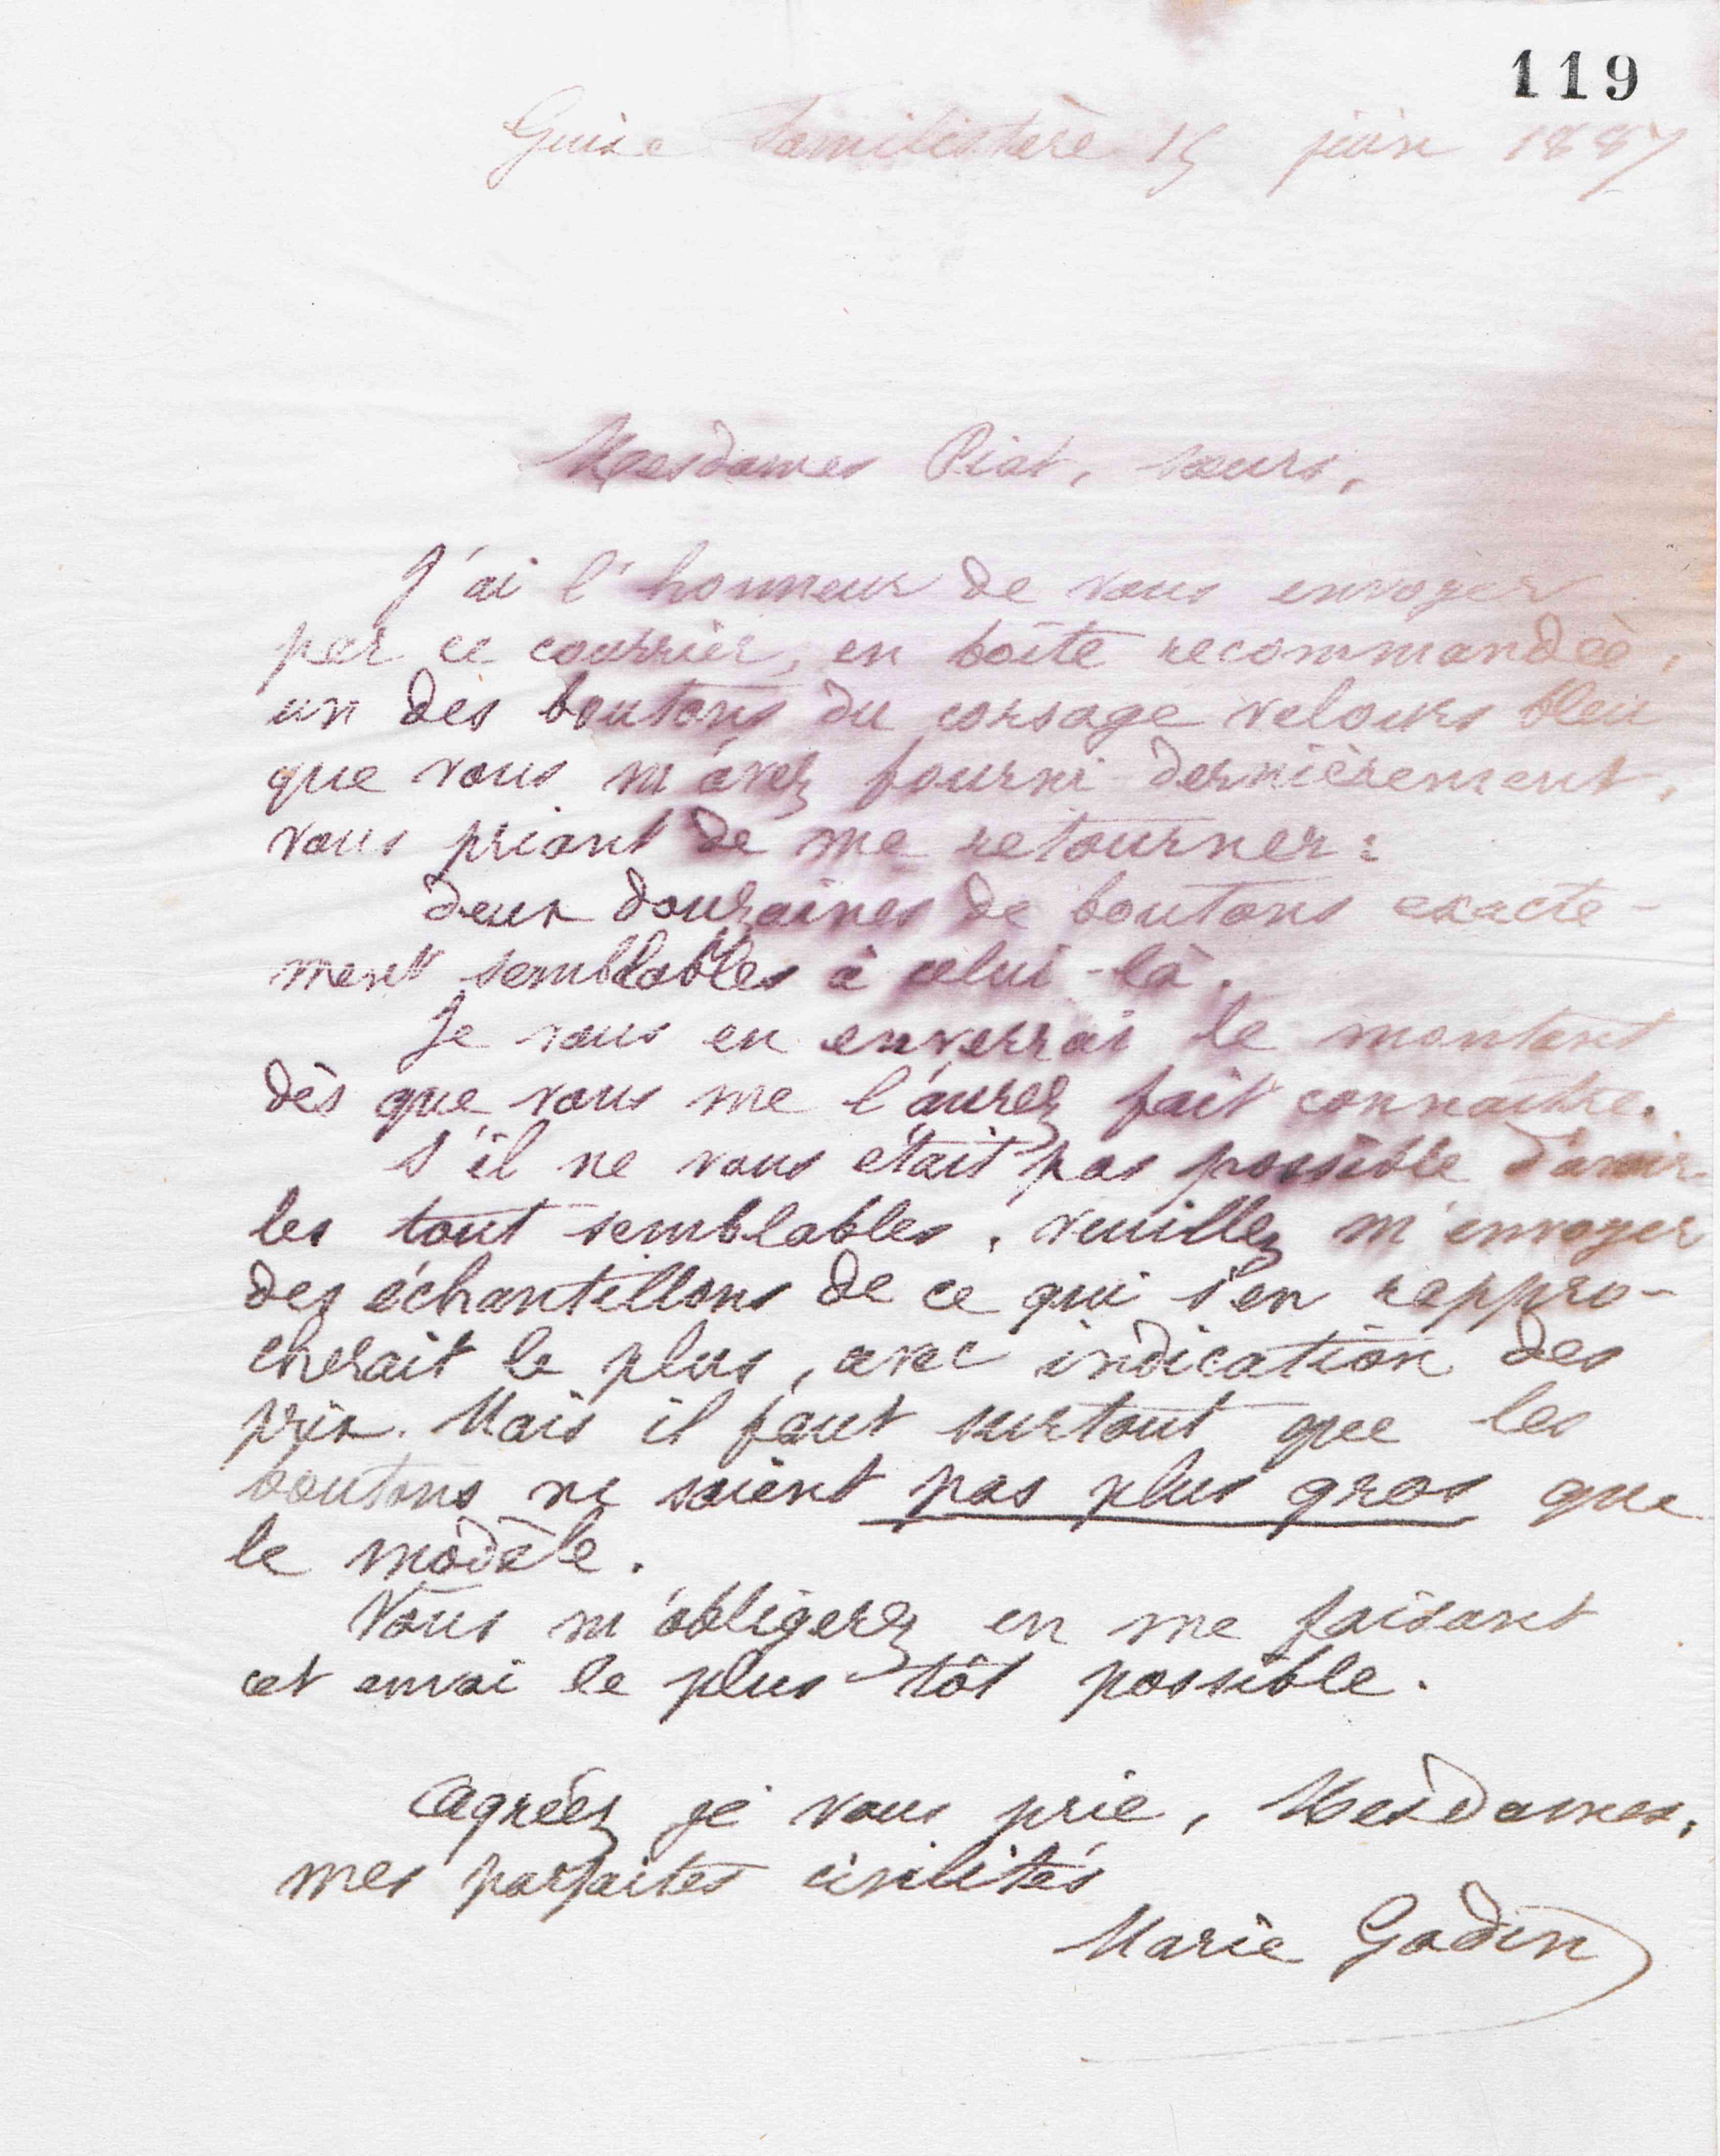 119
Guise Familistère 15 juin 1887
Mesdames Piat, sœurs,
J'ai l'honneur de vous envoyer
par ce courrier, en boîte recommandée,
un des boutons du corsage velours bleu
que vous m'avez fourni dernièrement,
vous priant de me retourner :
deux douzaines de boutons exacte-
ment semblables à celui-là.
Je vous en enverrai le montant
dès que vous me l'aurez fait connaître.
S'il ne vous était pas possible d'avoir
les tout semblables, veuillez m'envoyer
des échantillons de ce qui s'en rappro-
cherait le plus, avec indication des
prix. Mais il faut surtout que les
boutons ne soient pas plus gros que
le modèle.
Vous m'obligerez en me faisant
cet envoi le plus tôt possible.
Agréez je vous prie, Mesdames,
mes parfaites civilités
Marie Godin